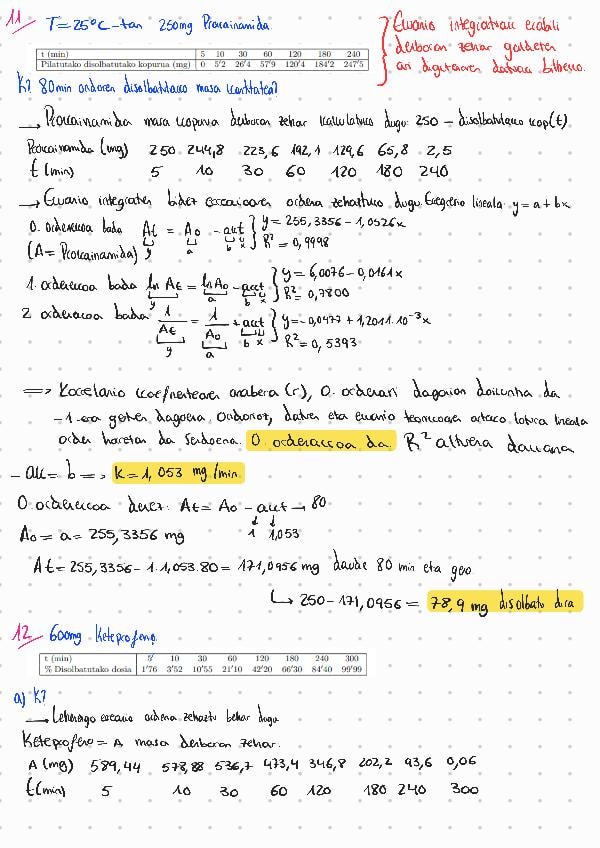 11 T=25ºC-tan 250mg Procainamida.
Ekuazio integratuak erabili
denboran zehar galdetzen
ari digutelako datuak bitartez.
t (min) 5 10 30 60 120 180 240
Pilatutako disolbatutako kopurua (mg) 0 5'2 26'4 57'9 120'4 184'2 247'5
K? 80min ondoren disolbatutako masa kantitatea?
→ Procainamida masa kopurua denboran zehar kalkulatuko dugu: 250 - disolbatutako kop(t).
Procainamida (mg) 250 244,8 223,6 192,1 129,6 65,8 2,5
t (min) 5 10 30 60 120 180 240
→ Ekuazio integratuen bidez erreakzioaren ordena zehaztuko dugu. Erregresio lineala: y=a+bx
0. ordenekoa bada At = A0 - akt } y= 255,3356-1,0526x
(A= Procainamida) y a b x R²= 0,9998
1. ordenekoa bada ln At = ln A0 - akt } y= 6,0076-0,0161x
y a b x R²= 0,7800
2. ordenekoa bada 1/At = 1/A0 + akt } y= -0,0477 + 1,2011·10⁻³x
y a b x R²= 0,5393
⇒ Korrelazio koefizientearen arabera (r), 0. ordenari dagokion doikuntza da
-1-era gehien dagoena. Ondorioz, datuen eta ekuazio teorikoaren arteko lotura lineala
orden honetan da sendoena. 0. ordenekoa da R² altuena daukana
-ak = b ⇒ k=1,053 mg/min.
0. ordenekoa denez: At= A0 - akt → 80
A0 = a= 255,3356 mg 1 1,053
At= 255,3356 - 1·1,053·80= 171,0956 mg daude 80 min eta gero
↳ 250-171,0956 = 78,9 mg disolbatu dira
12 600mg Ketoprofeno.
t (min) 5' 10 30 60 120 180 240 300
% Disolbatutako dosia 1'76 3'52 10'55 21'10 42'20 66'30 84'40 99'99
a) K?
→ Lehenengo ekuazio ordena zehaztu behar dugu
Ketoprofeno = A masa denboran zehar.
A (mg) 589,44 578,88 536,7 473,4 346,8 202,2 93,6 0,06
t (min) 5 10 30 60 120 180 240 300